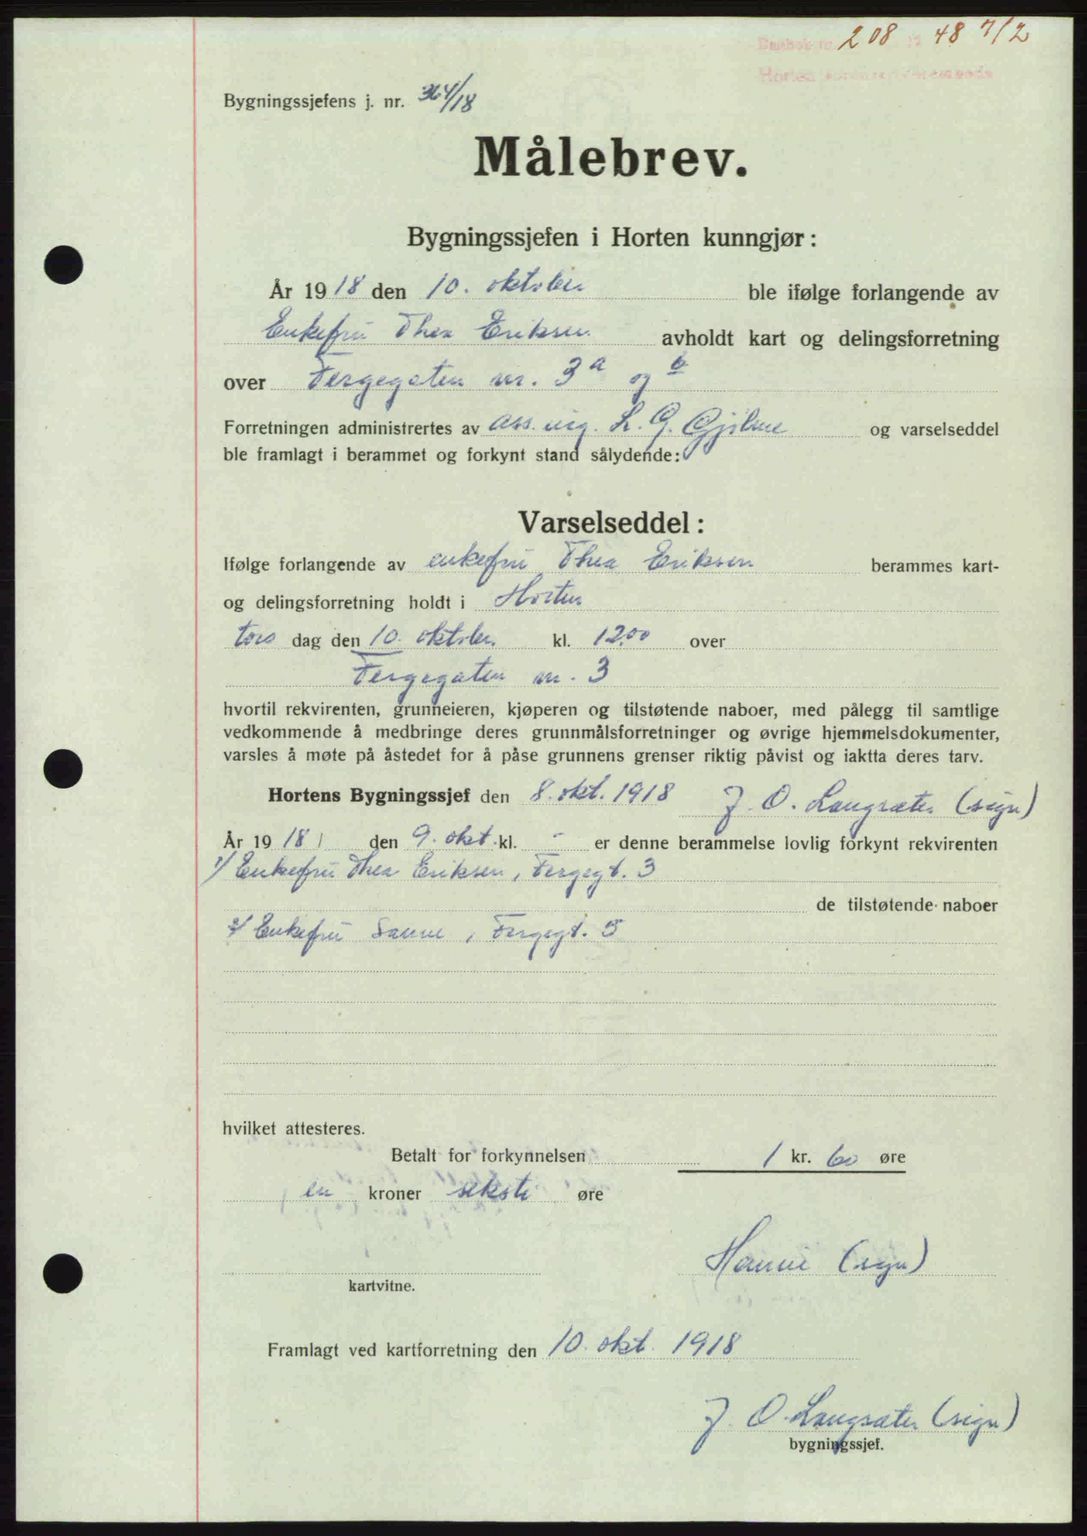 208 48 7/2
Horten
Bygningssjefens j. nr. 364/18
Målebrev.
Bygningssjefen i Horten kunngjør:
År 1918 den 10. oktober ble ifølge forlangende av
Enkefru Thea Eriksen avholdt kart og delingsforretning
over Fergegaten nr. 3 a og b
Forretningen administrertes av ass. ing. L. G. og varselseddel
ble framlagt i berammet og forkynt stand sålydende:
Varselseddel:
Ifølge forlangende av enkefru Thea Eriksen berammes kart-
og delingsforretning holdt i Horten
tors dag den 10. oktober kl. 12.00 over
Fergegaten nr. 3
hvortil rekvirenten, grunneieren, kjøperen og tilstøtende naboer, med pålegg til samtlige
vedkommende å medbringe deres grunnmålsforretninger og øvrige hjemmelsdokumenter,
varsles å møte på åstedet for å påse grunnens grenser riktig påvist og iaktta deres tarv.
Hortens Bygningssjef den 8. okt. 1918 J. O. Langsæter (sign)
År 1918 den 9. okt. kl. - er denne berammelse lovlig forkynt rekvirenten
1/ Enkefru Thea Eriksen, Fergegt. 3
de tilstøtende naboer
2/ Enkefru Sanne, Fergegt. 5
hvilket attesteres.
Betalt for forkynnelsen 1 kr. 60 øre
en kroner seksti øre
(sign)
kartvitne.
Framlagt ved kartforretning den 10. okt. 1918
J. O. Langsæter (sign)
bygningssjef.